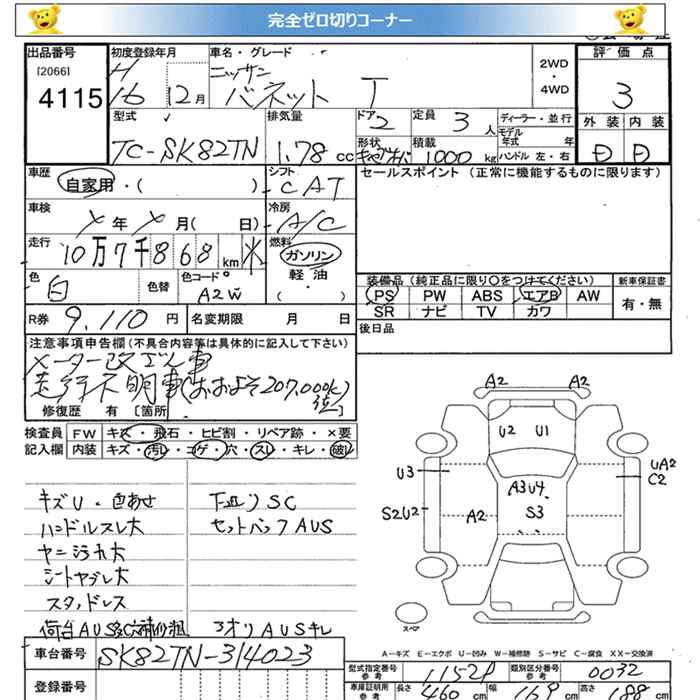 完全ゼロ切りコーナー
出品番号
[2066]
4115
初度登録年月
H
16 12月
車名・グレード
ニッサン
バネット T
2WD
・
4WD
評価点
3
外装 内装
D D
型式
TC-SK82TN
排気量
1.78 cc
ドア
2
定員
3人
形状
積載
1000 kg
ディーラー・並行
モデル年式 年
ハンドル 左・右
車歴
自家用・( )
シフト
CAT
セールスポイント (正常に機能するものに限ります)
車検
メ年メ月( 日)
冷房
A/C
走行
10万7千868km
燃料
ガソリン
軽油
( )
色
白
色替
色コード
A2W
装備品(純正品に限り○をつけてください)
新車保証書
PS PW ABS エアB AW
SR ナビ TV カワ
有・無
R券 9,110円
名変期限 月 日
後日品
注意事項申告欄(不具合内容等は具体的に記入して下さい)
メーター改ざん車
走行不明車(おおよそ207,000k)
修復歴 有 [箇所
検査員
記入欄
FW キズ・飛石・ヒビ割・リペア跡・×要
内装 キズ・汚レ・コゲ・穴・スレ・キレ・破レ
キズU・色あせ
ハンドルスレ大
ヤニ汚れ大
シートヤブレ大
スタッドレス
下廻りSC
セットバックAUS
A2 A2
U2 U1
U3
A3U4
UA2
C2
S2U2
A2
S3
スペア
A-キズ E-エクボ U-凹み W-補修跡 S-サビ C-腐食 XX-交換済
車台番号 SK82TN-314023
登録番号
型式指定番号
参考
11529
類別区分番号
参考
0032
車庫証明用
参考
長さ 460 cm
幅 169 cm
高さ 188 cm